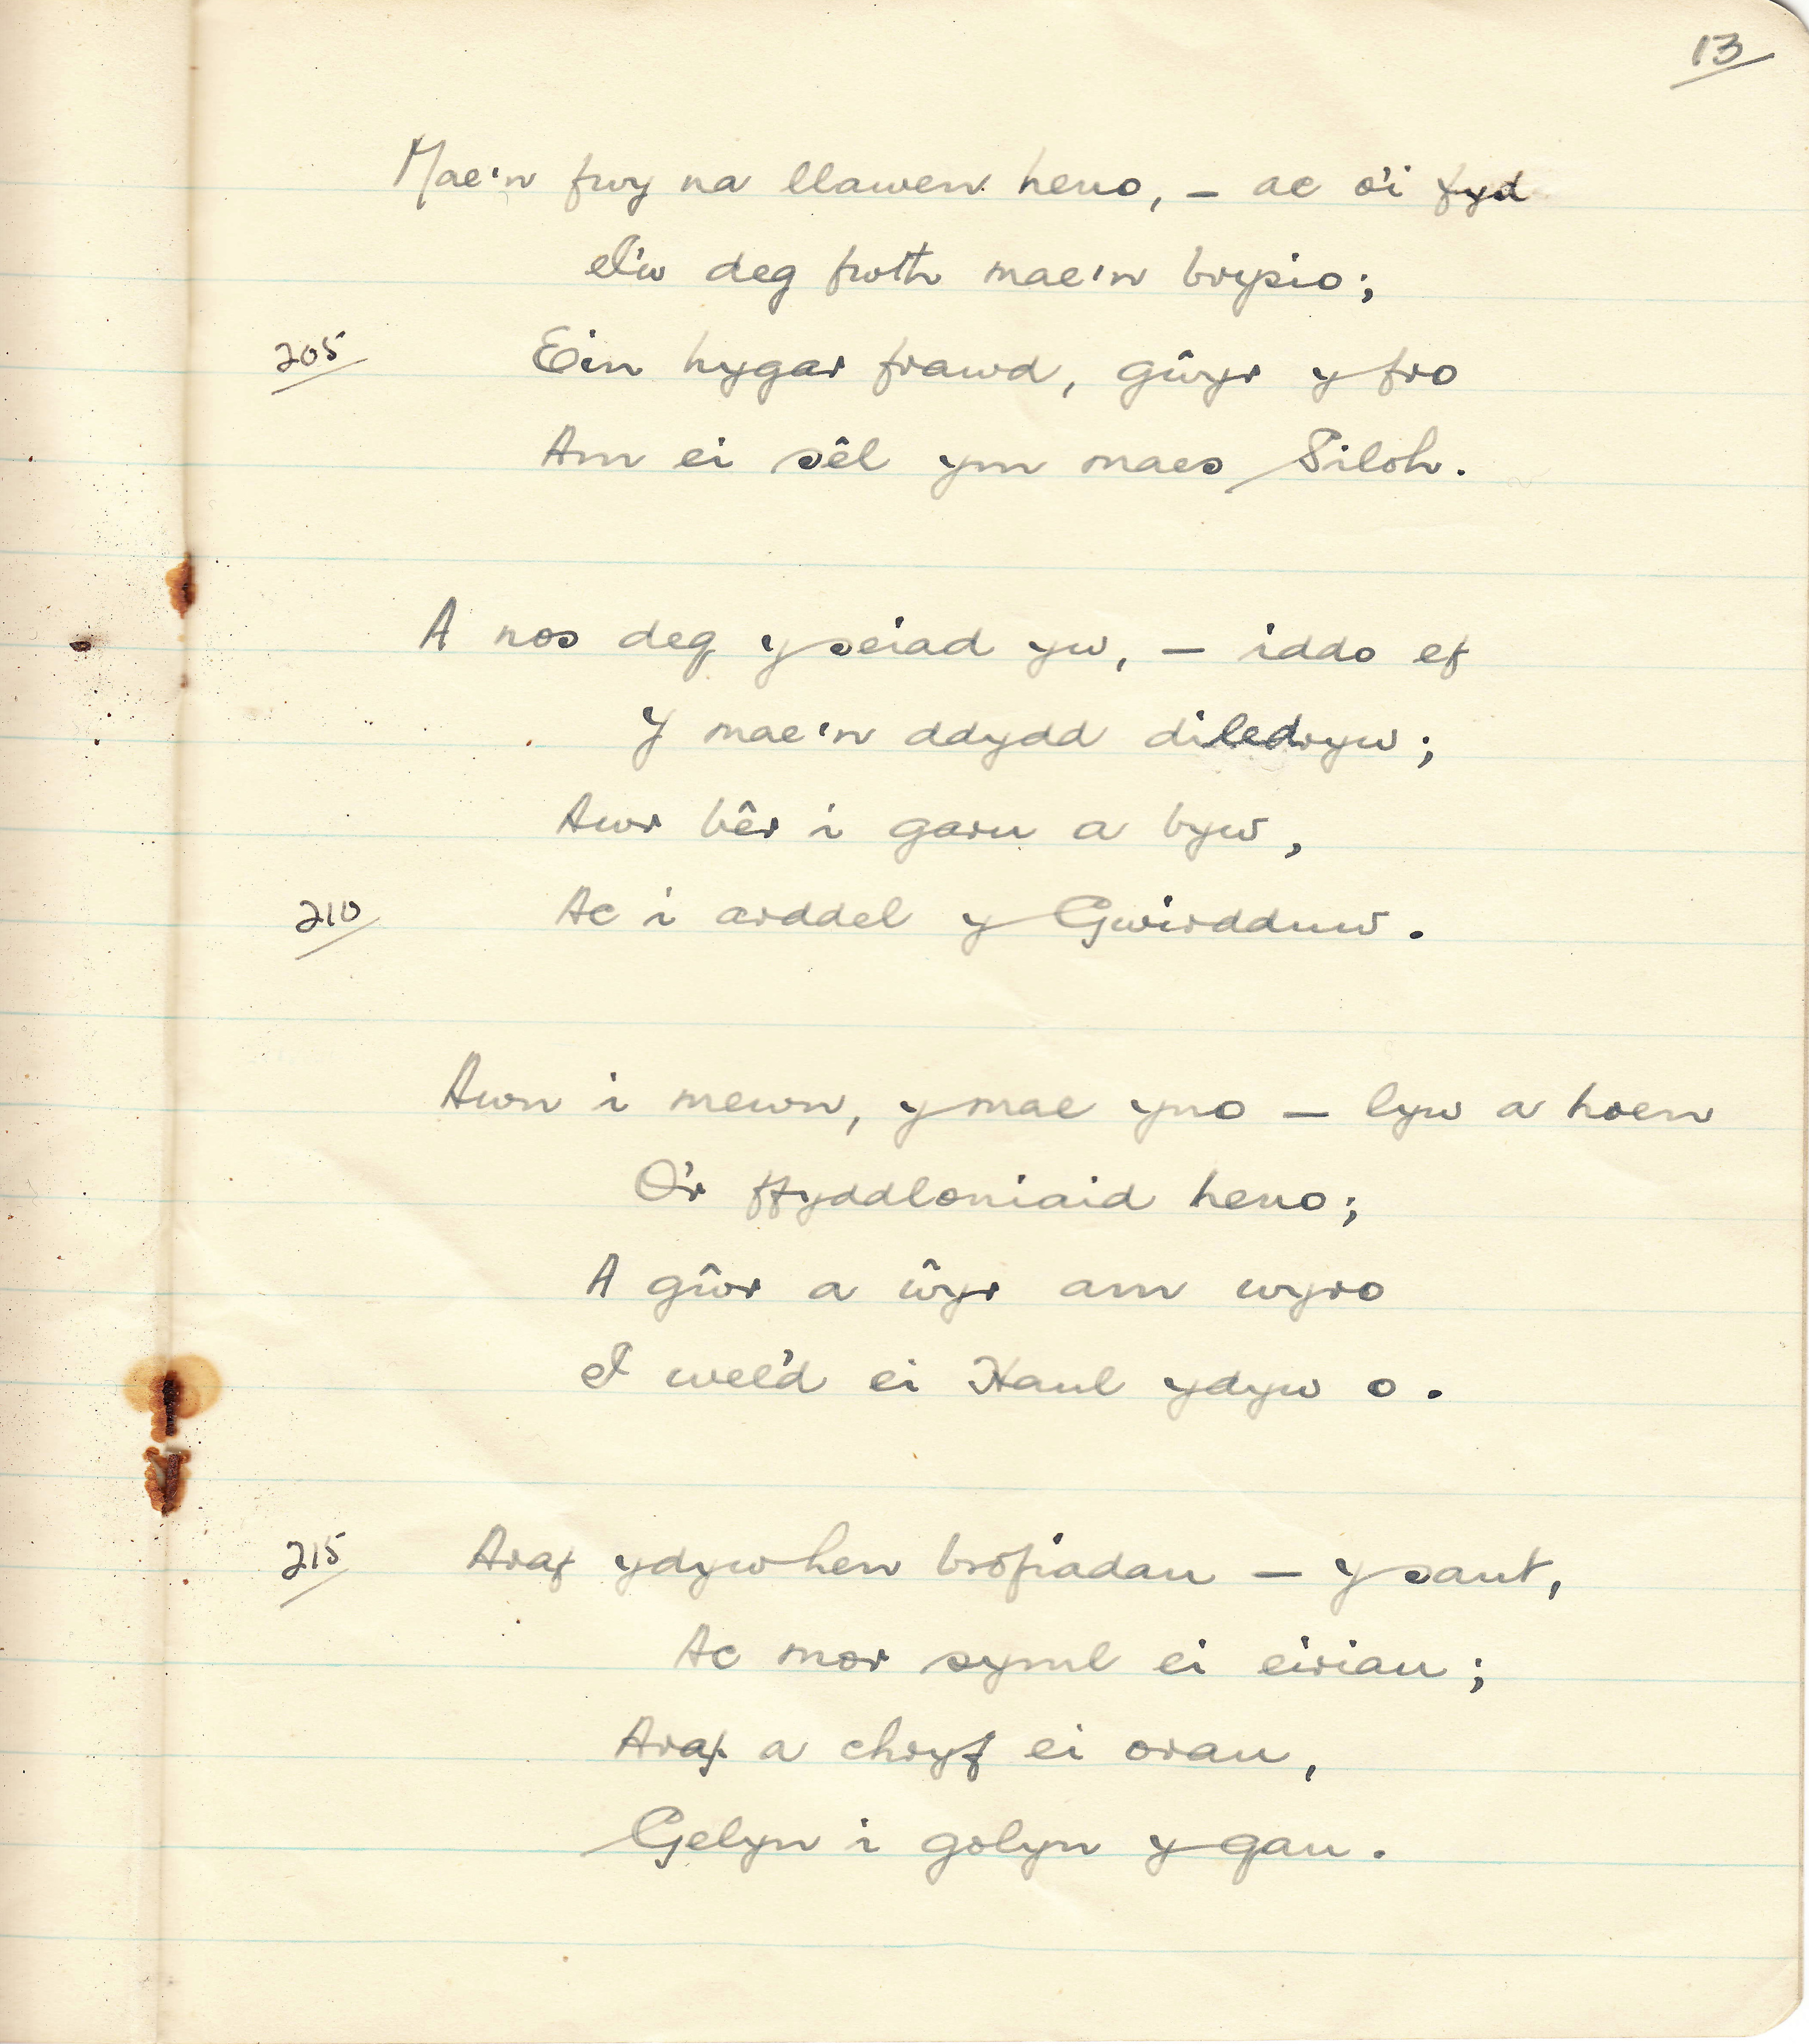 13
Mae'n fwy na llawen heno, – ac o'i fyd
I'w deg fwth mae'n brysio;
205 Ein hygar frawd, gŵyr y fro
Am ei sêl ym maes Siloh.
A nos deg y seiad yw, – iddo ef
Y mae'n ddydd diledryw;
Awr bêr i garu a byw,
210 Ac i arddel y Gwirdduw.
Awn i mewn, y mae yno – lyw a hoen
O'r ffyddloniaid heno;
A gŵr a ŵyr am wyro
I wel'd ei Haul ydyw o.
215 Araf ydyw hen brofiadau – y sant,
Ac mor syml ei eiriau;
Araf a chryf ei orau,
Gelyn i golyn y gau.